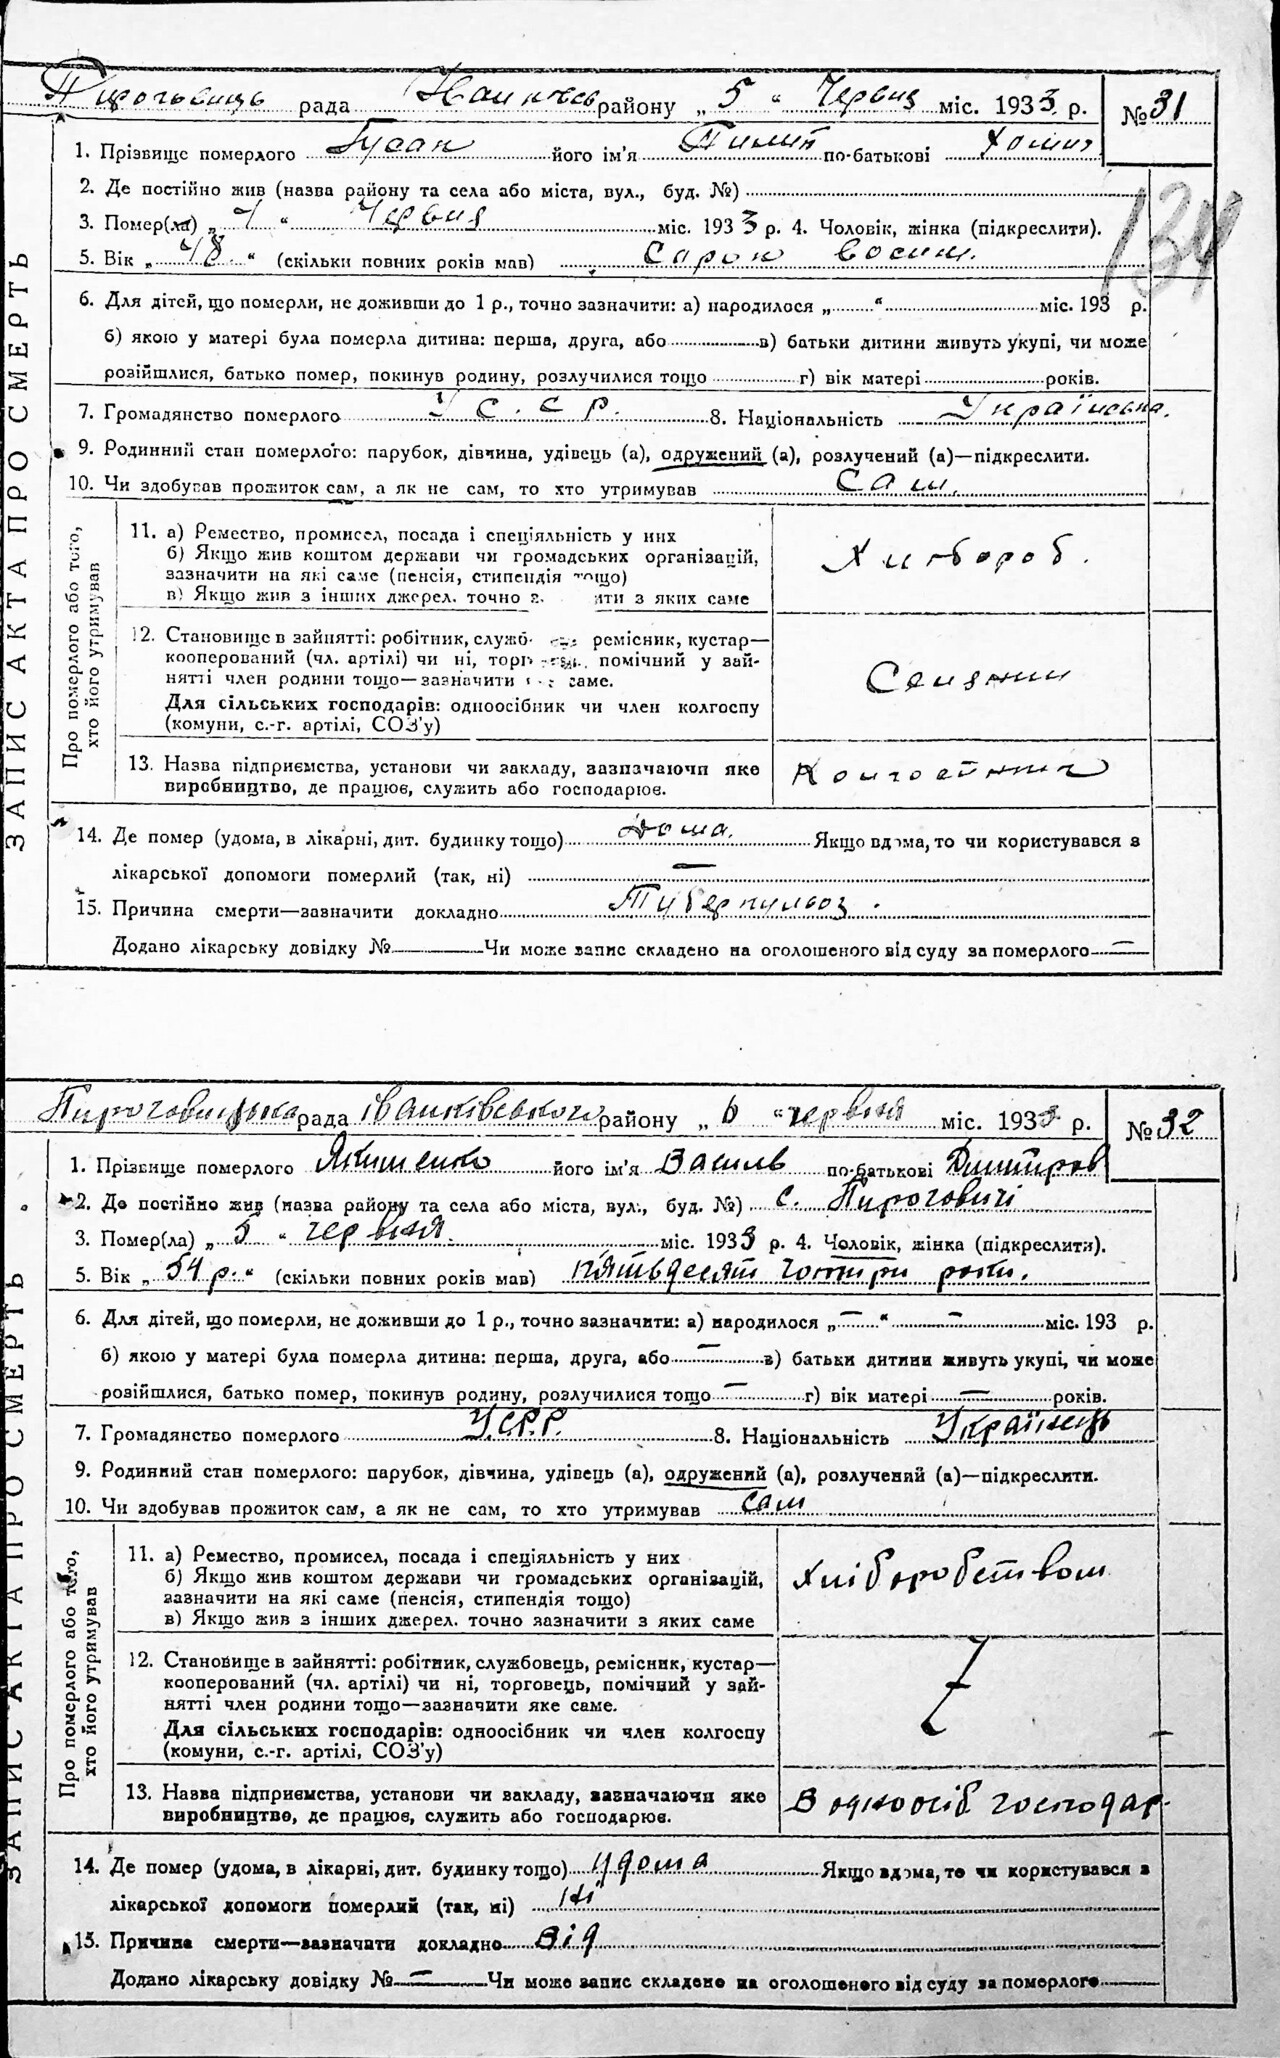 рада району „ 5 “ Червня міс. 1933 р. № 31
134
ЗАПИС АКТА ПРО СМЕРТЬ
1. Прізвище померлого Гусак його ім'я Пилип по-батькові Хомич
2. Де постійно жив (назва району та села або міста, вул., буд. №)
3. Помер(ла) „ 4 “ Червня міс. 1933 р. 4. Чоловік, жінка (підкреслити).
5. Вік „ 48 “ (скільки повних років мав) Сорок восим.
6. Для дітей, що померли, не доживши до 1 р., точно зазначити: а) народилося „ “ міс. 193 р.
б) якою у матері була померла дитина: перша, друга, або в) батьки дитини живуть укупі, чи може
розійшлися, батько помер, покинув родину, розлучилися тощо г) вік матері років.
7. Громадянство померлого У С. С Р. 8. Національність Українська.
9. Родинний стан померлого: парубок, дівчина, удівець (а), одружений (а), розлучений (а)—підкреслити.
10. Чи здобував прожиток сам, а як не сам, то хто утримував Сам.
Про померлого або того,
хто його утримував
11. а) Ремество, промисел, посада і спеціяльність у них
б) Якщо жив коштом держави чи громадських організацій,
зазначити на які саме (пенсія, стипендія тощо)
в) Якщо жив з інших джерел. точно з ити з яких саме
Хлибороб.
12. Становище в зайнятті: робітник, служб ремісник, кустар—
кооперований (чл. артілі) чи ні, торг помічний у зай-
нятті член родини тощо—зазначити саме.
Для сільських господарів: одноосібник чи член колгоспу
(комуни, с.-г. артілі, СОЗ'у)
Селянин
13. Назва підприємства, установи чи закладу, зазначаючи яке
виробництво, де працює, служить або господарює.
14. Де помер (удома, в лікарні, дит. будинку тощо) дома. Якщо вдома, то чи користувався з
лікарської допомоги померлий (так, ні) —
15. Причина смерти—зазначити докладно Туберкульоз.
Додано лікарську довідку № Чи може запис складено на оголошеного від суду за померлого —
Пироговицька рада Іванківського району „ 6 “ червня міс. 1933 р. № 32
ЗАПИС АКТА ПРО СМЕРТЬ
1. Прізвище померлого Якименко його ім'я Василь по-батькові Дмитров
2. Де постійно жив (назва району та села або міста, вул., буд. №) с. Пироговичі
3. Помер(ла) „ 5 “ червня. міс. 1933 р. 4. Чоловік, жінка (підкреслити).
5. Вік „ 54 р. “ (скільки повних років мав) пятьдесят чотири роки.
6. Для дітей, що померли, не доживши до 1 р., точно зазначити: а) народилося „ — “ — міс. 193 р.
б) якою у матері була померла дитина: перша, друга, або — в) батьки дитини живуть укупі, чи може
розійшлися, батько помер, покинув родину, розлучилися тощо — г) вік матері — років.
7. Громадянство померлого У.С.Р.Р. 8. Національність Українець
9. Родинний стан померлого: парубок, дівчина, удівець (а), одружений (а), розлучений (а)—підкреслити.
10. Чи здобував прожиток сам, а як не сам, то хто утримував сам
Про померлого або того,
хто його утримував
11. а) Ремество, промисел, посада і спеціяльність у них
б) Якщо жив коштом держави чи громадських організацій,
зазначити на які саме (пенсія, стипендія тощо)
в) Якщо жив з інших джерел. точно зазначити з яких саме
Хліборобством
12. Становище в зайнятті: робітник, службовець, ремісник, кустар—
кооперований (чл. артілі) чи ні, торговець, помічний у зай-
нятті член родини тощо—зазначити яке саме.
Для сільських господарів: одноосібник чи член колгоспу
(комуни, с.-г. артілі, СОЗ'у)
13. Назва підприємства, установи чи закладу, зазначаючи яке
виробництво, де працює, служить або господарює.
В одноосіб господар.
14. Де помер (удома, в лікарні, дит. будинку тощо) удома Якщо вдома, то чи користувався з
лікарської допомоги померлий (так, ні) ні
15. Причина смерти—зазначити докладно від
Додано лікарську довідку № — Чи може запис складено на оголошеного від суду за померлого